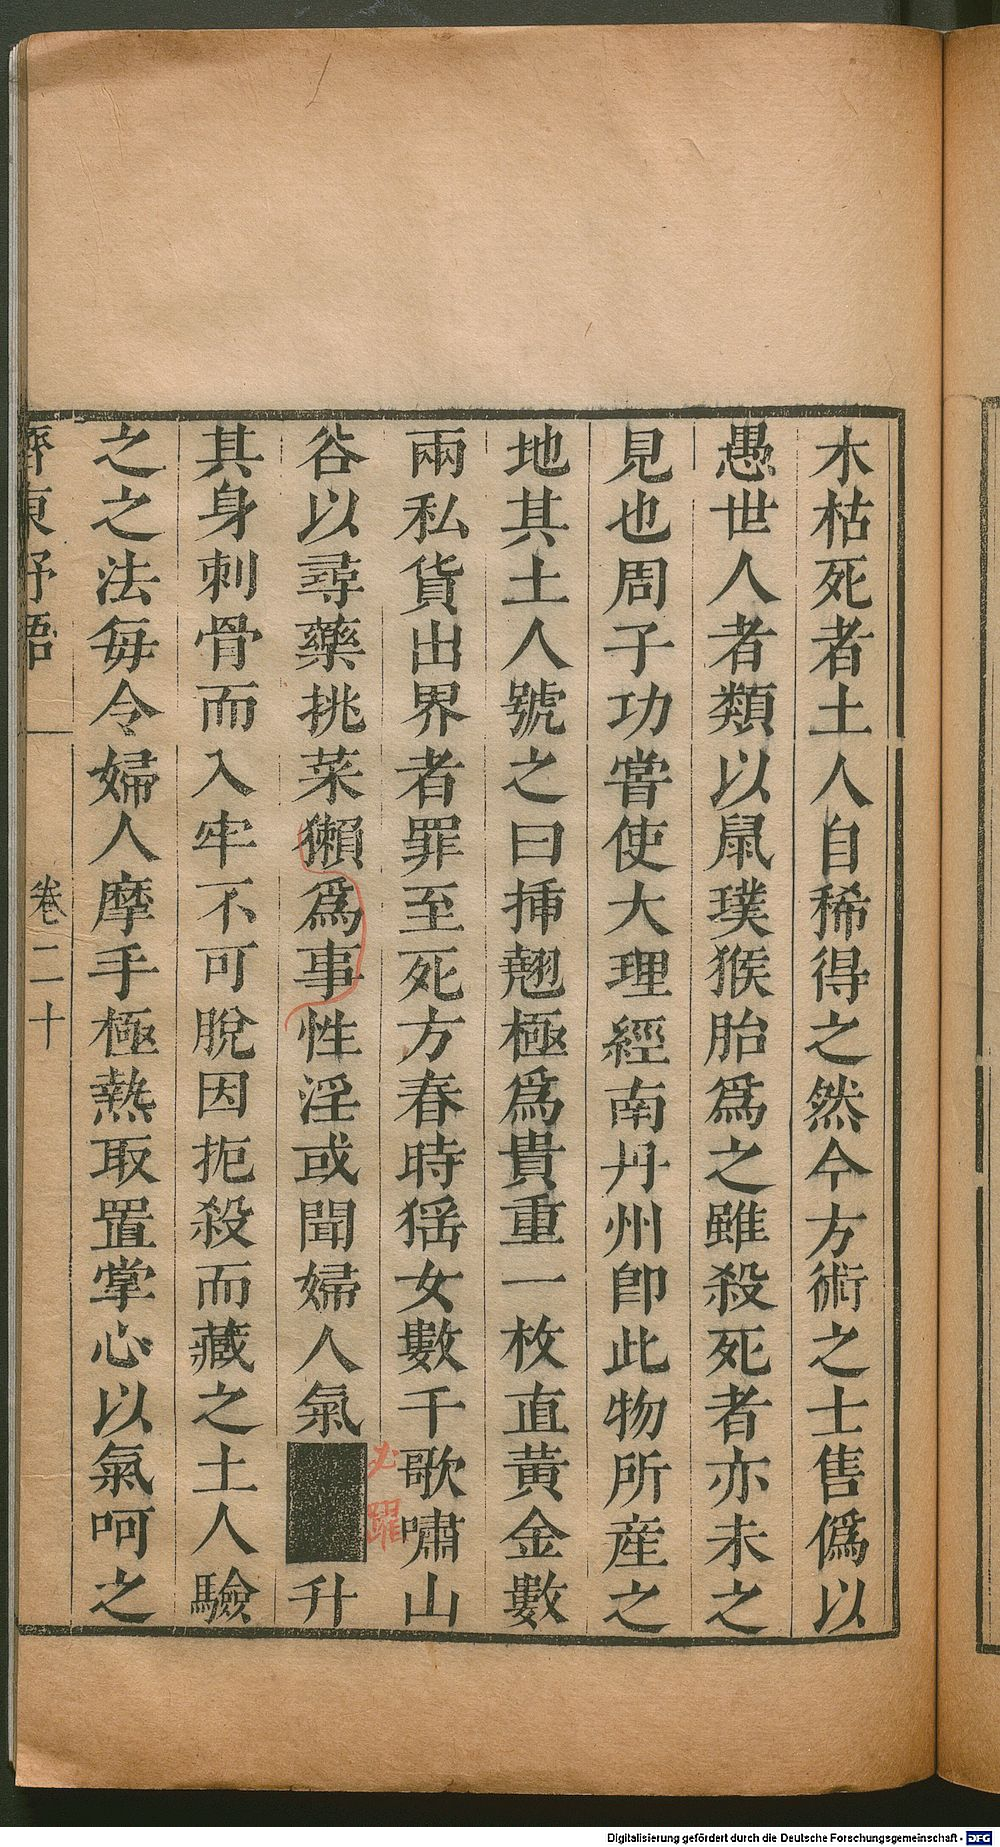 木枯死者土人自稀得之然今方術之士售僞以
愚世人者類以鼠璞猴胎爲之雖殺死者亦未之
見也周子功嘗使大理經南丹州卽此物所産之
地其土人號之曰揷翹極爲貴重一枚直黃金數
兩私貨出界者罪至死方春時猺女數千歌嘯山
谷以尋藥挑菜獺爲事性淫或聞婦人氣升
必躍
其身刺骨而入牢不可脫因扼殺而藏之土人驗
之之法每令婦人摩手極熱取置掌心以氣呵之
齊東野語 卷二十
Digitalisierung gefördert durch die Deutsche Forschungsgemeinschaft - DFG